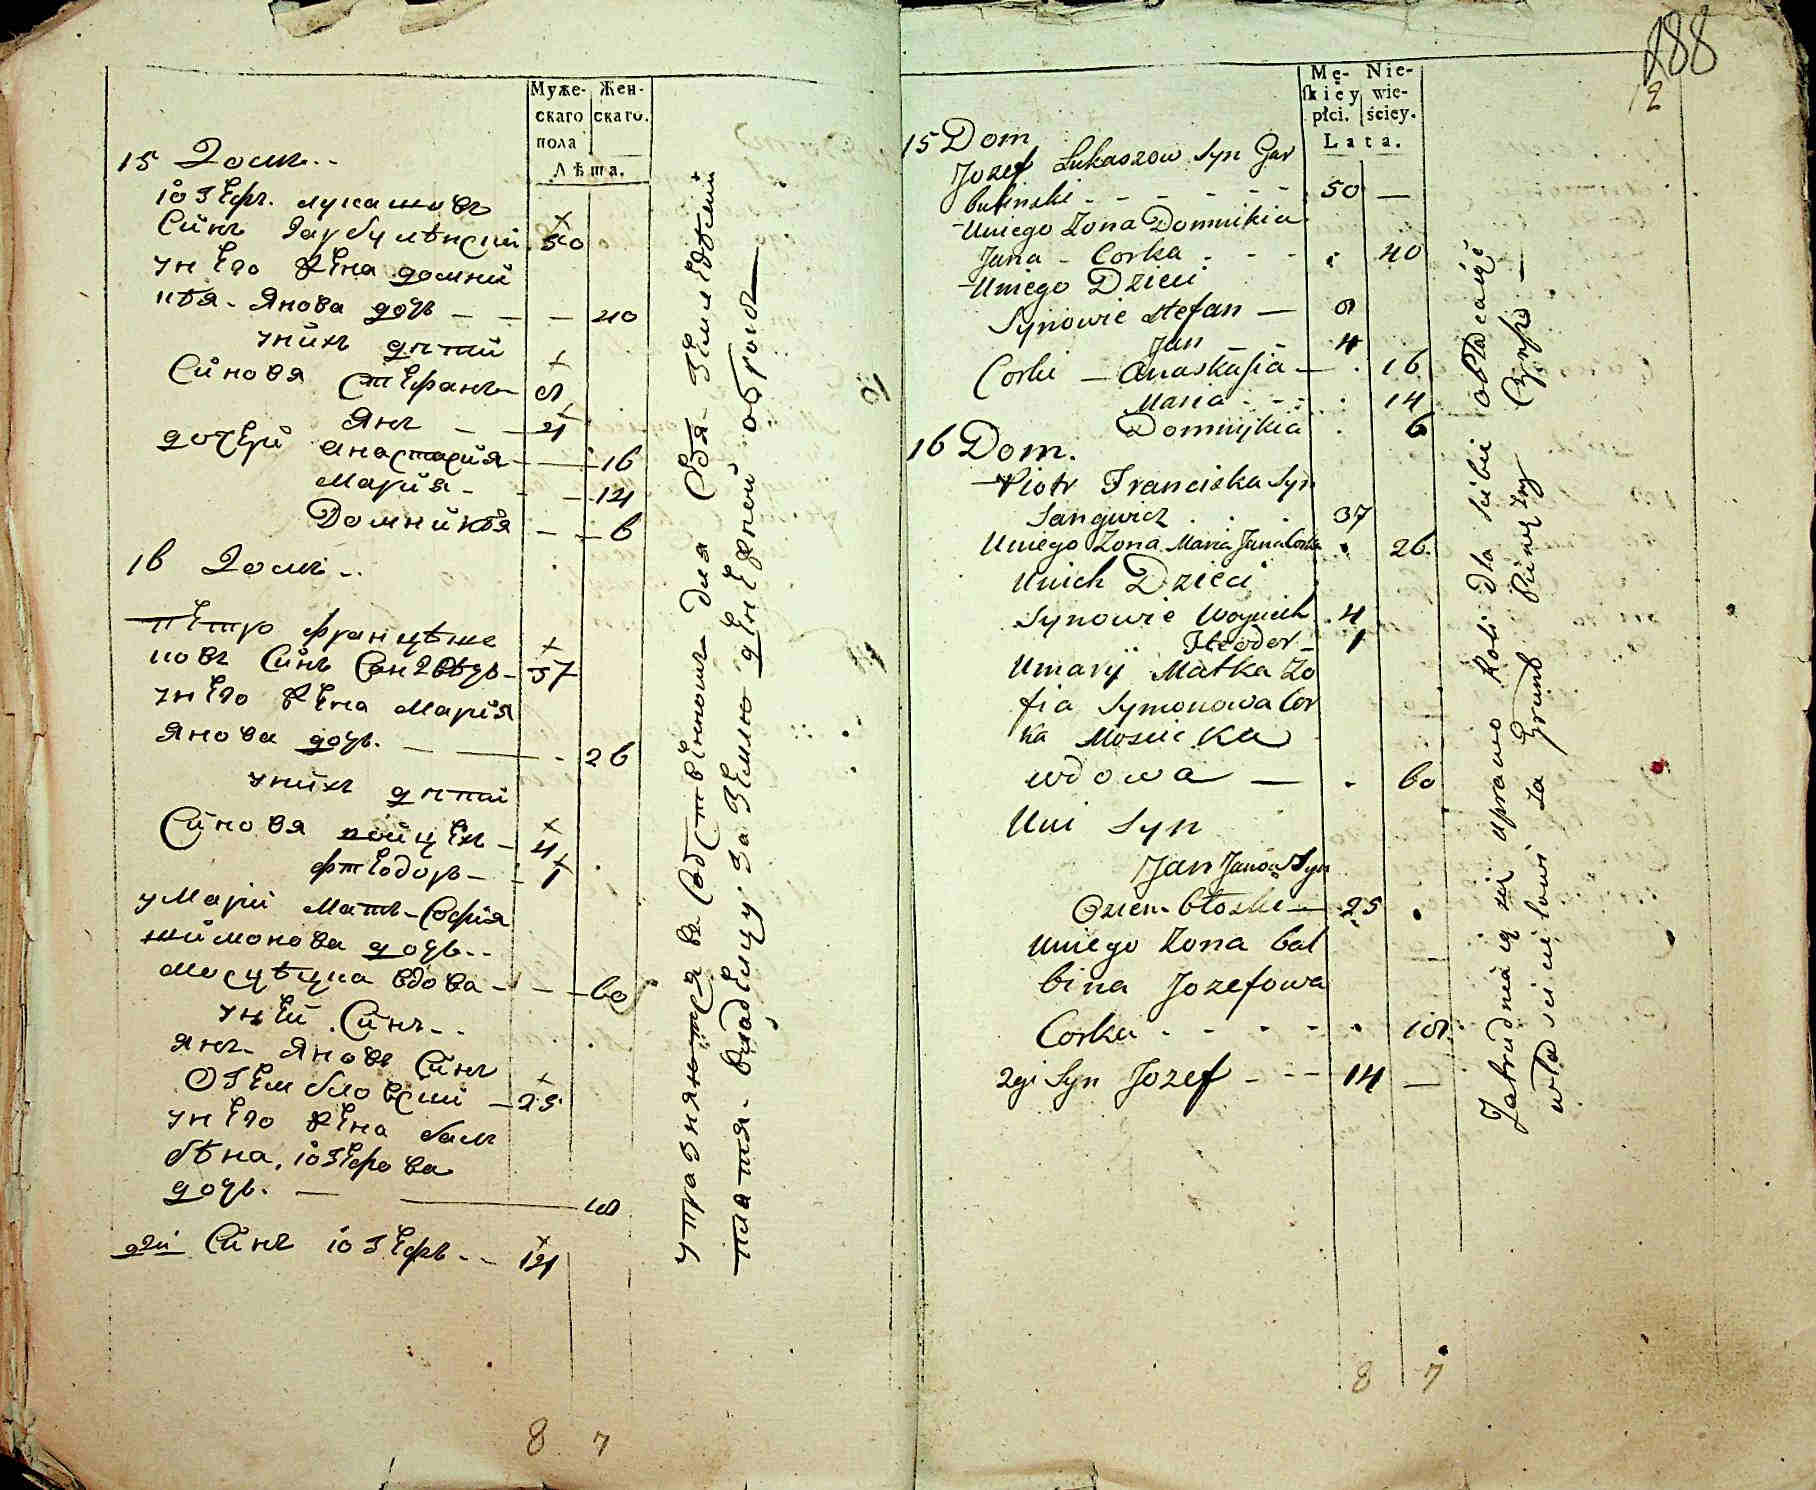 Муже- Жен-
скаго скаго.
пола
Лѣта.
15 Домъ
іозефъ лукашовъ
Синъ Гарбулѣнский 50
унего жена домни
нѣя Янова дочь — — — 40
унихъ дѣтий
Синовя Стефанъ
Янъ — — 4
дочери анастасия — 16
Мария — — 14
Домникія — — 6
16 Домъ
петро францѣшко
новъ Синъ Сангвѣчъ — 37
унего жена Мария
Янова дочь. — — 26
унихъ дѣтий
Синовя войцех — 4
фтеодоръ — 1
у Марии Мать София
шимонова дочь
Мосцѣцка вдова — — 60
уней Синъ
янъ Яновъ Синъ
Озембловский — 25
унего жена баль
бѣна, іозефова
дочь. — 18
2гй Синъ іозефъ — 14
упразняются въ собственномъ для себя земледѣлии
платя владѣлцу за землю денежной оброкъ —
8 7
188
2
Mę- Nie-
ſkiey wie-
płci. ściey.
Lata.
15 Dom
Jozef Lukaszow Syn Gar
bulinski - - - - - 50 —
Uniego Zona Domnikia
Jana - Corka - - - 40
Uniego Dzieci
Synowie Stefan —
Jan - - 4
Corki — Anastasia — 16
Maria - - - 14
Domnijkia 6
16 Dom.
Piotr Franciska Syn
Sangwicz 37
Uniego Zona Maria Jana Corka 26.
Unich Dzieci
Synowie Woyciech 4
Fteodor - 1
Umaryi Matka Zo
fia Symonowa Cor
ka Mosiicka
wdowa — 60
Uni Syn
Jan Janow Syn
Oziembłoski — 25
Uniego Zona Bal
bina Jozefowa
Corka - - - - 18
2gi Syn Jozef - - - 14 —
Zatrudniaią się uprawą Roli dla siebie opłacaiąc
właścicielowi za Grunt Pieniężny Czynsz —
8 7